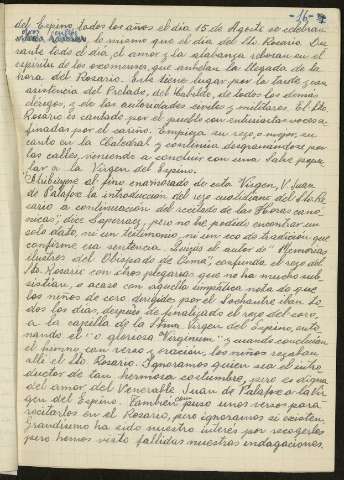 -16-
del Espino, todos los años el día 15 de Agosto se celebran
lo mismo que el día del Sto. Rosario. Du
rante todo el día, el amor y la alabanza rebosan en el
espíritu de los oxomenses, que anhelan la llegada de la
hora del Rosario. Este tiene lugar por la tarde y con
asistencia del Prelado, del Cabildo, de todos los demás
clérigos, y de las autoridades civiles y militares. El Sto.
Rosario es cantado por el pueblo con entusiastas voces a-
finadas por el cariño. Empieza su rezo, o mejor, su
canto en la Catedral y continúa desgranándose por
las calles, viniendo a concluir con una Salve popu
lar a la Virgen del Espino.
Atribúyese al fino enamorado de esta Virgen, V. Juan
de Palafox la introducción del rezo cuotidiano del Sto. Ro
sario a continuación del recitado de las Horas canó
nicas; dice Saperias; pero no he podido encontrar un
solo dato, ni un testimonio, ni un eco de tradición que
confirme esa sentencia. Quizás el autor de "Memorias
ilustres del Obispado de Osma", confunda el rezo del
Sto. Rosario con otras plegarias que no ha mucho sub
sistían, o acaso con aquella simpática nota de que
los niños de coro dirigidos por el Sochantre iban to
dos los días, después de finalizado el rezo del coro,
a la capilla de la Stma. Virgen del Espino, ento
nando el "o gloriosa Virginum" y cuando concluían
el himno, con verso y oración, los niños rezaban
allí el Sto. Rosario. Ignoramos quien sea el intro
ductor de tan hermosa costumbre, pero es digna
del amor del Venerable Juan de Palafox a la Vir
gen del Espino. También compuso unos versos para
recitarlos en el Rosario, pero ignoramos si existen,
grandísimo ha sido nuestro interés por recogerlos
pero hemos visto fallidas nuestras indagaciones.